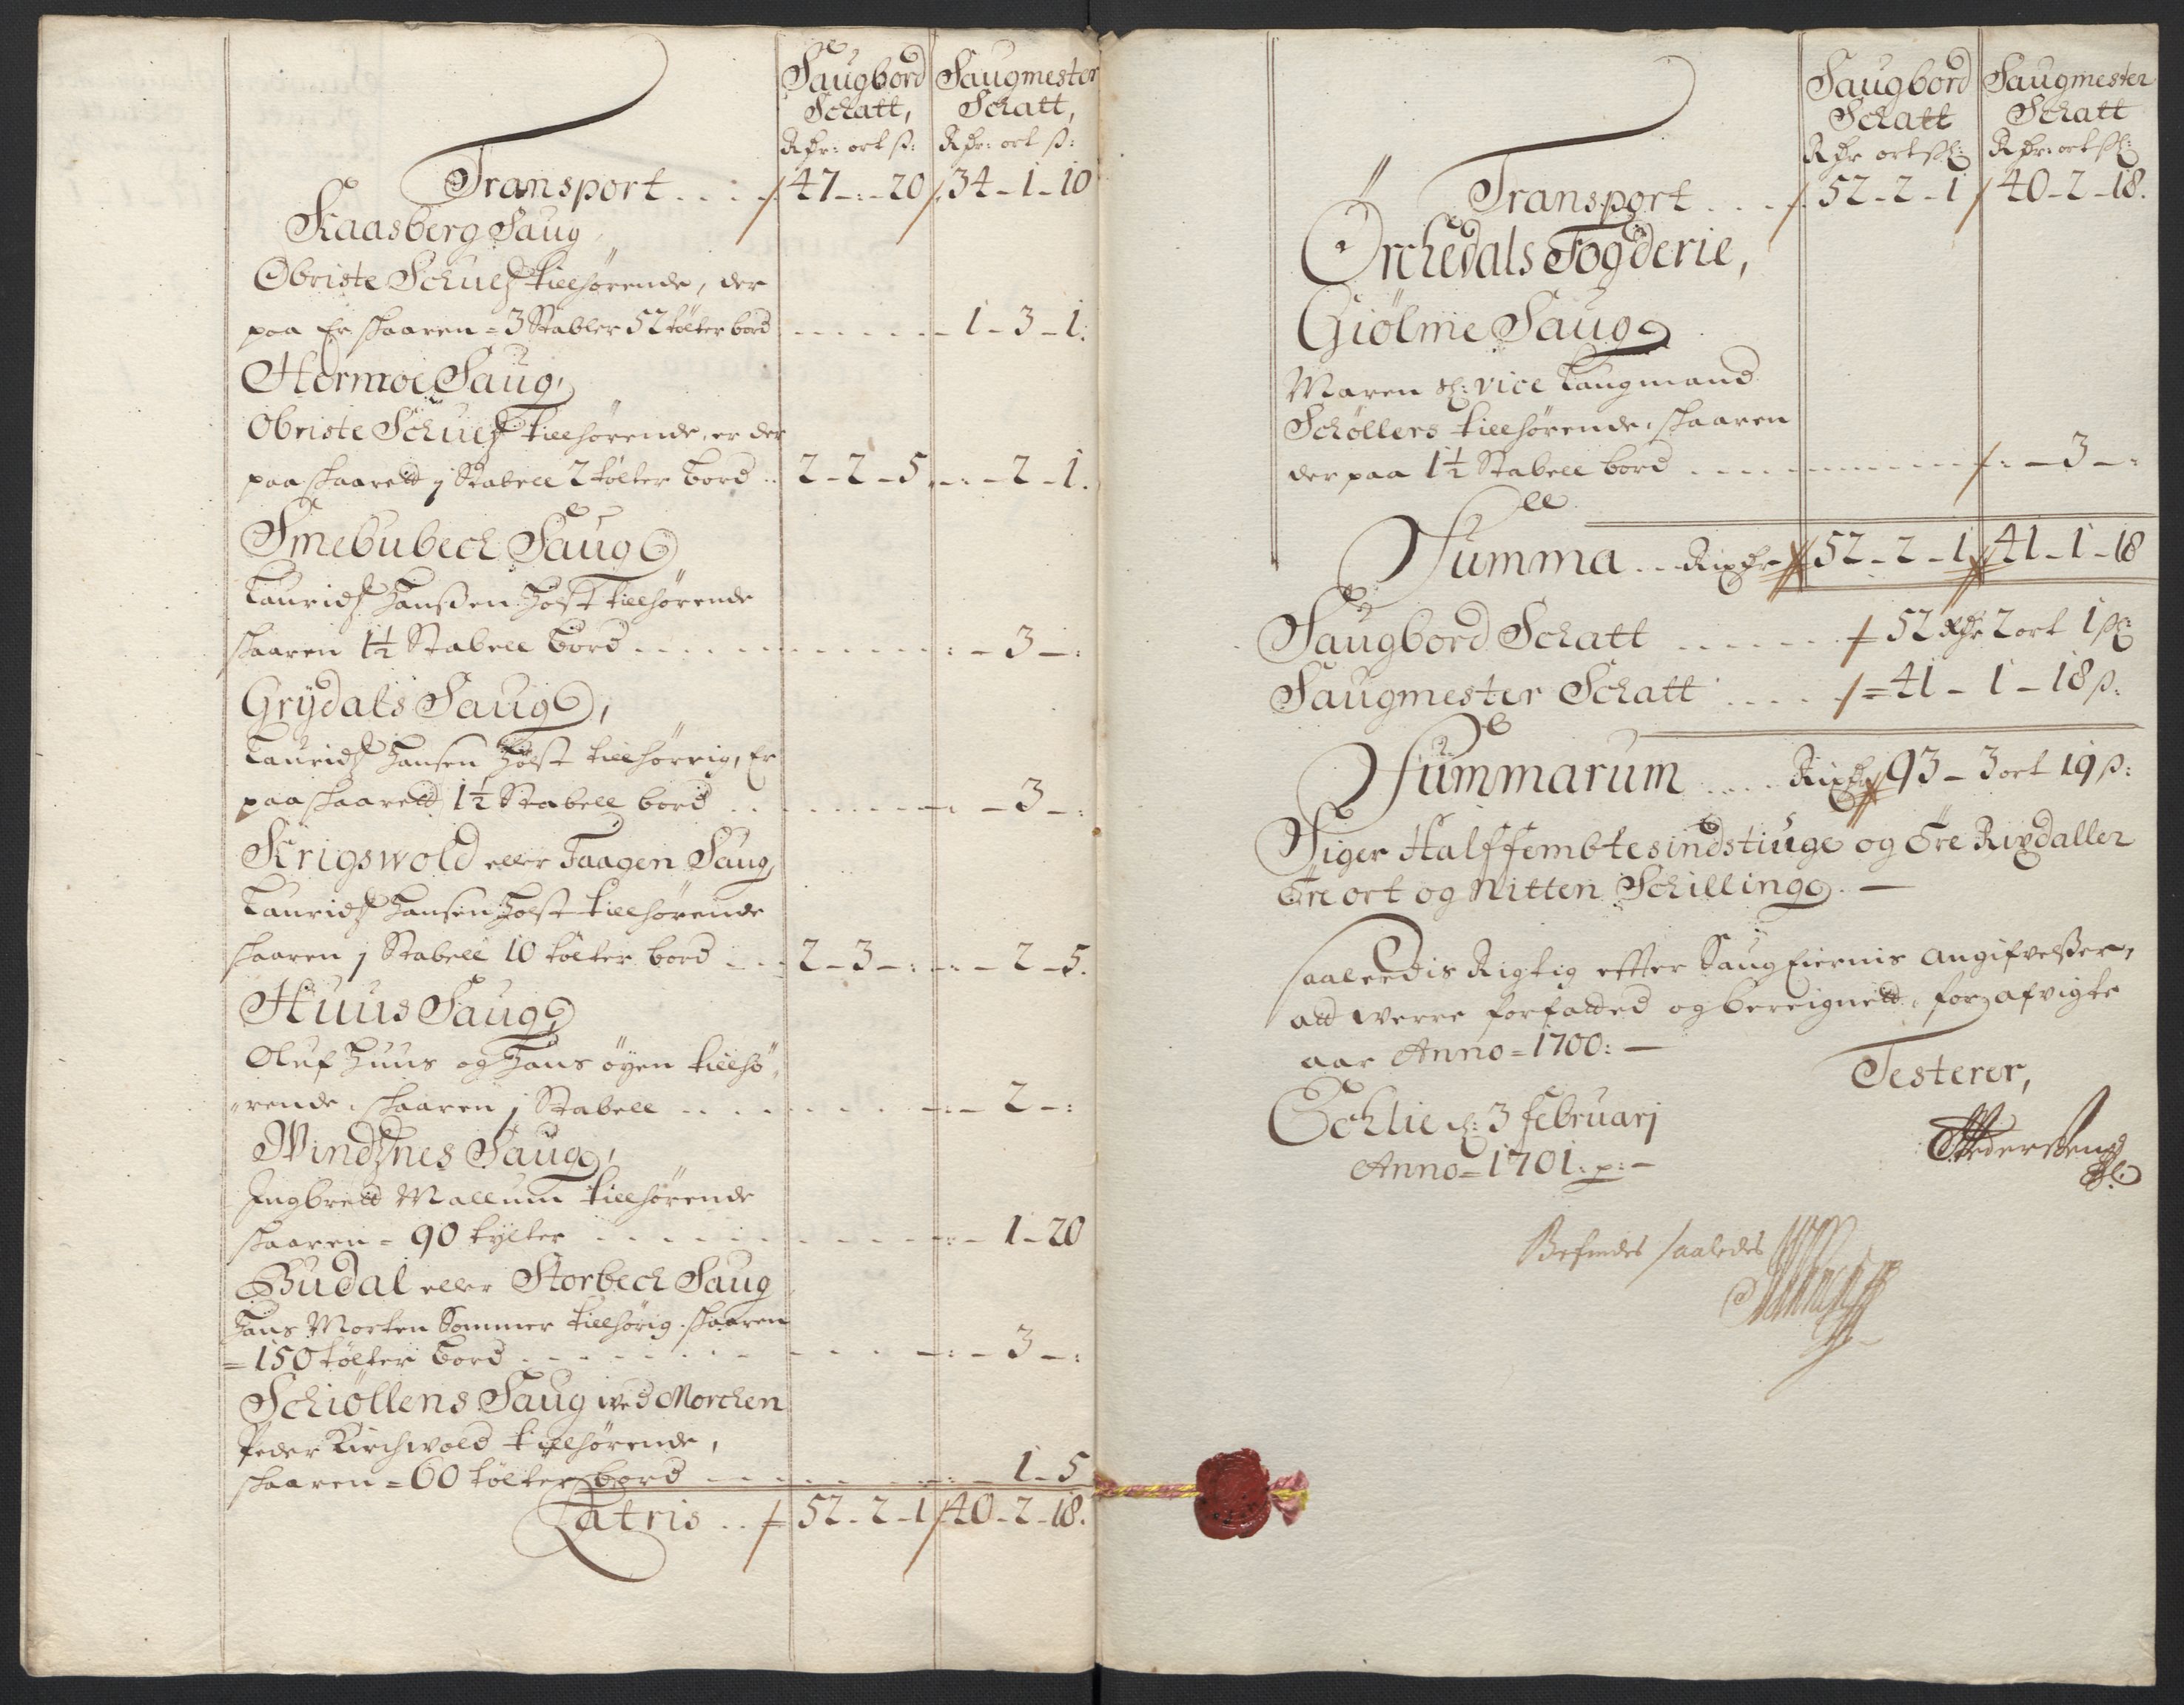 Saugbord Saugmester
Schatt, Schatt,
Rdr: ort s: Rdr: ort s:
Transport . . . . 47 - : - 20 34 - 1 - 10
Kaasberg Saug
Obriste Schultz tillhørende, der
paa er skaaren = 3 Stabler 52 tølter bord - - - - - 1 - 3 - 1:
Hermoe Saug,
Obriste Schultz tillhørende, er der
paa skaarett j Stabell 2 tølter bord . . 2 - 2 - 5 . - : - 2 - 1.
Smebubech Saug
Lauridz Hanssen Holst tillhørende
skaaren 1½ Stabell bord - - - - - : - 3 - :
Grydals Saug,
Lauridz Hansen Holst tillhørrig, er
paa skaarett 1½ Stabell bord . . - - - - - 3 - :
Krigswold eller Haagen Saug,
Lauridz Hansen Holst tillhørende
skaaren j Stabell 10 tølter bord - - 2 - 3 - : - : - 2 - 5.
Huus Saug,
Oluf Huus og Hans øyen tillhø„
„rende, skaaren j Stabell . . . . . - : - 2 - :
Windznes Saug,
Ingbrett Mallum tillhørende
skaaren = 90 tylter - - - - - : - 1 - 20
Budal eller Storbech Saug
Hans Morten Sommer tillhørig, skaaren
= 150 tølter bord - - - - - : - 3 - :
Schiøllens Saug wed Morchen
Peder Kirchwold tillhørende,
skaaren = 60 tølter bord - - - - - : - 1 - 5
Latris . . 52 - 2 - 1 40 - 2 - 18.
Saugbord Saugmester
Schatt Schatt
Rdr ort sk: Rdr: ort sk:
Transport . . . . 52 - 2 - 1 40 - 2 - 18.
Örchedals Fogderie,
Giölme Saug
Maren sl: vice Laugmand
Schøllers tillhørende, skaaren
der paa 1½ Stabell bord - - - - - : - 3 - :
Summa . . Rixdr 52 - 2 - 1 41 - 1 - 18
Saugbord Schatt - - - - - 52 Rdr 2 ort 1 sk:
Saugmester Schatt . . . . = 41 - 1 - 18 s:
Summarum . . . . Rixdr 93 - 3 ort 19 s:
Siger Halffembtesindstiuge og Tre Rixdaller
Tre ort og Nitten Schilling. —
saaledis Rigtig effter Saug Eiernis angifvelsser,
att werre forfatted og bereignett, for afvigte
aar Anno = 1700: —
Testerer,
Echlie d: 3 februarj
Anno = 1701: p: —
Pederssen
Befindes saaledes